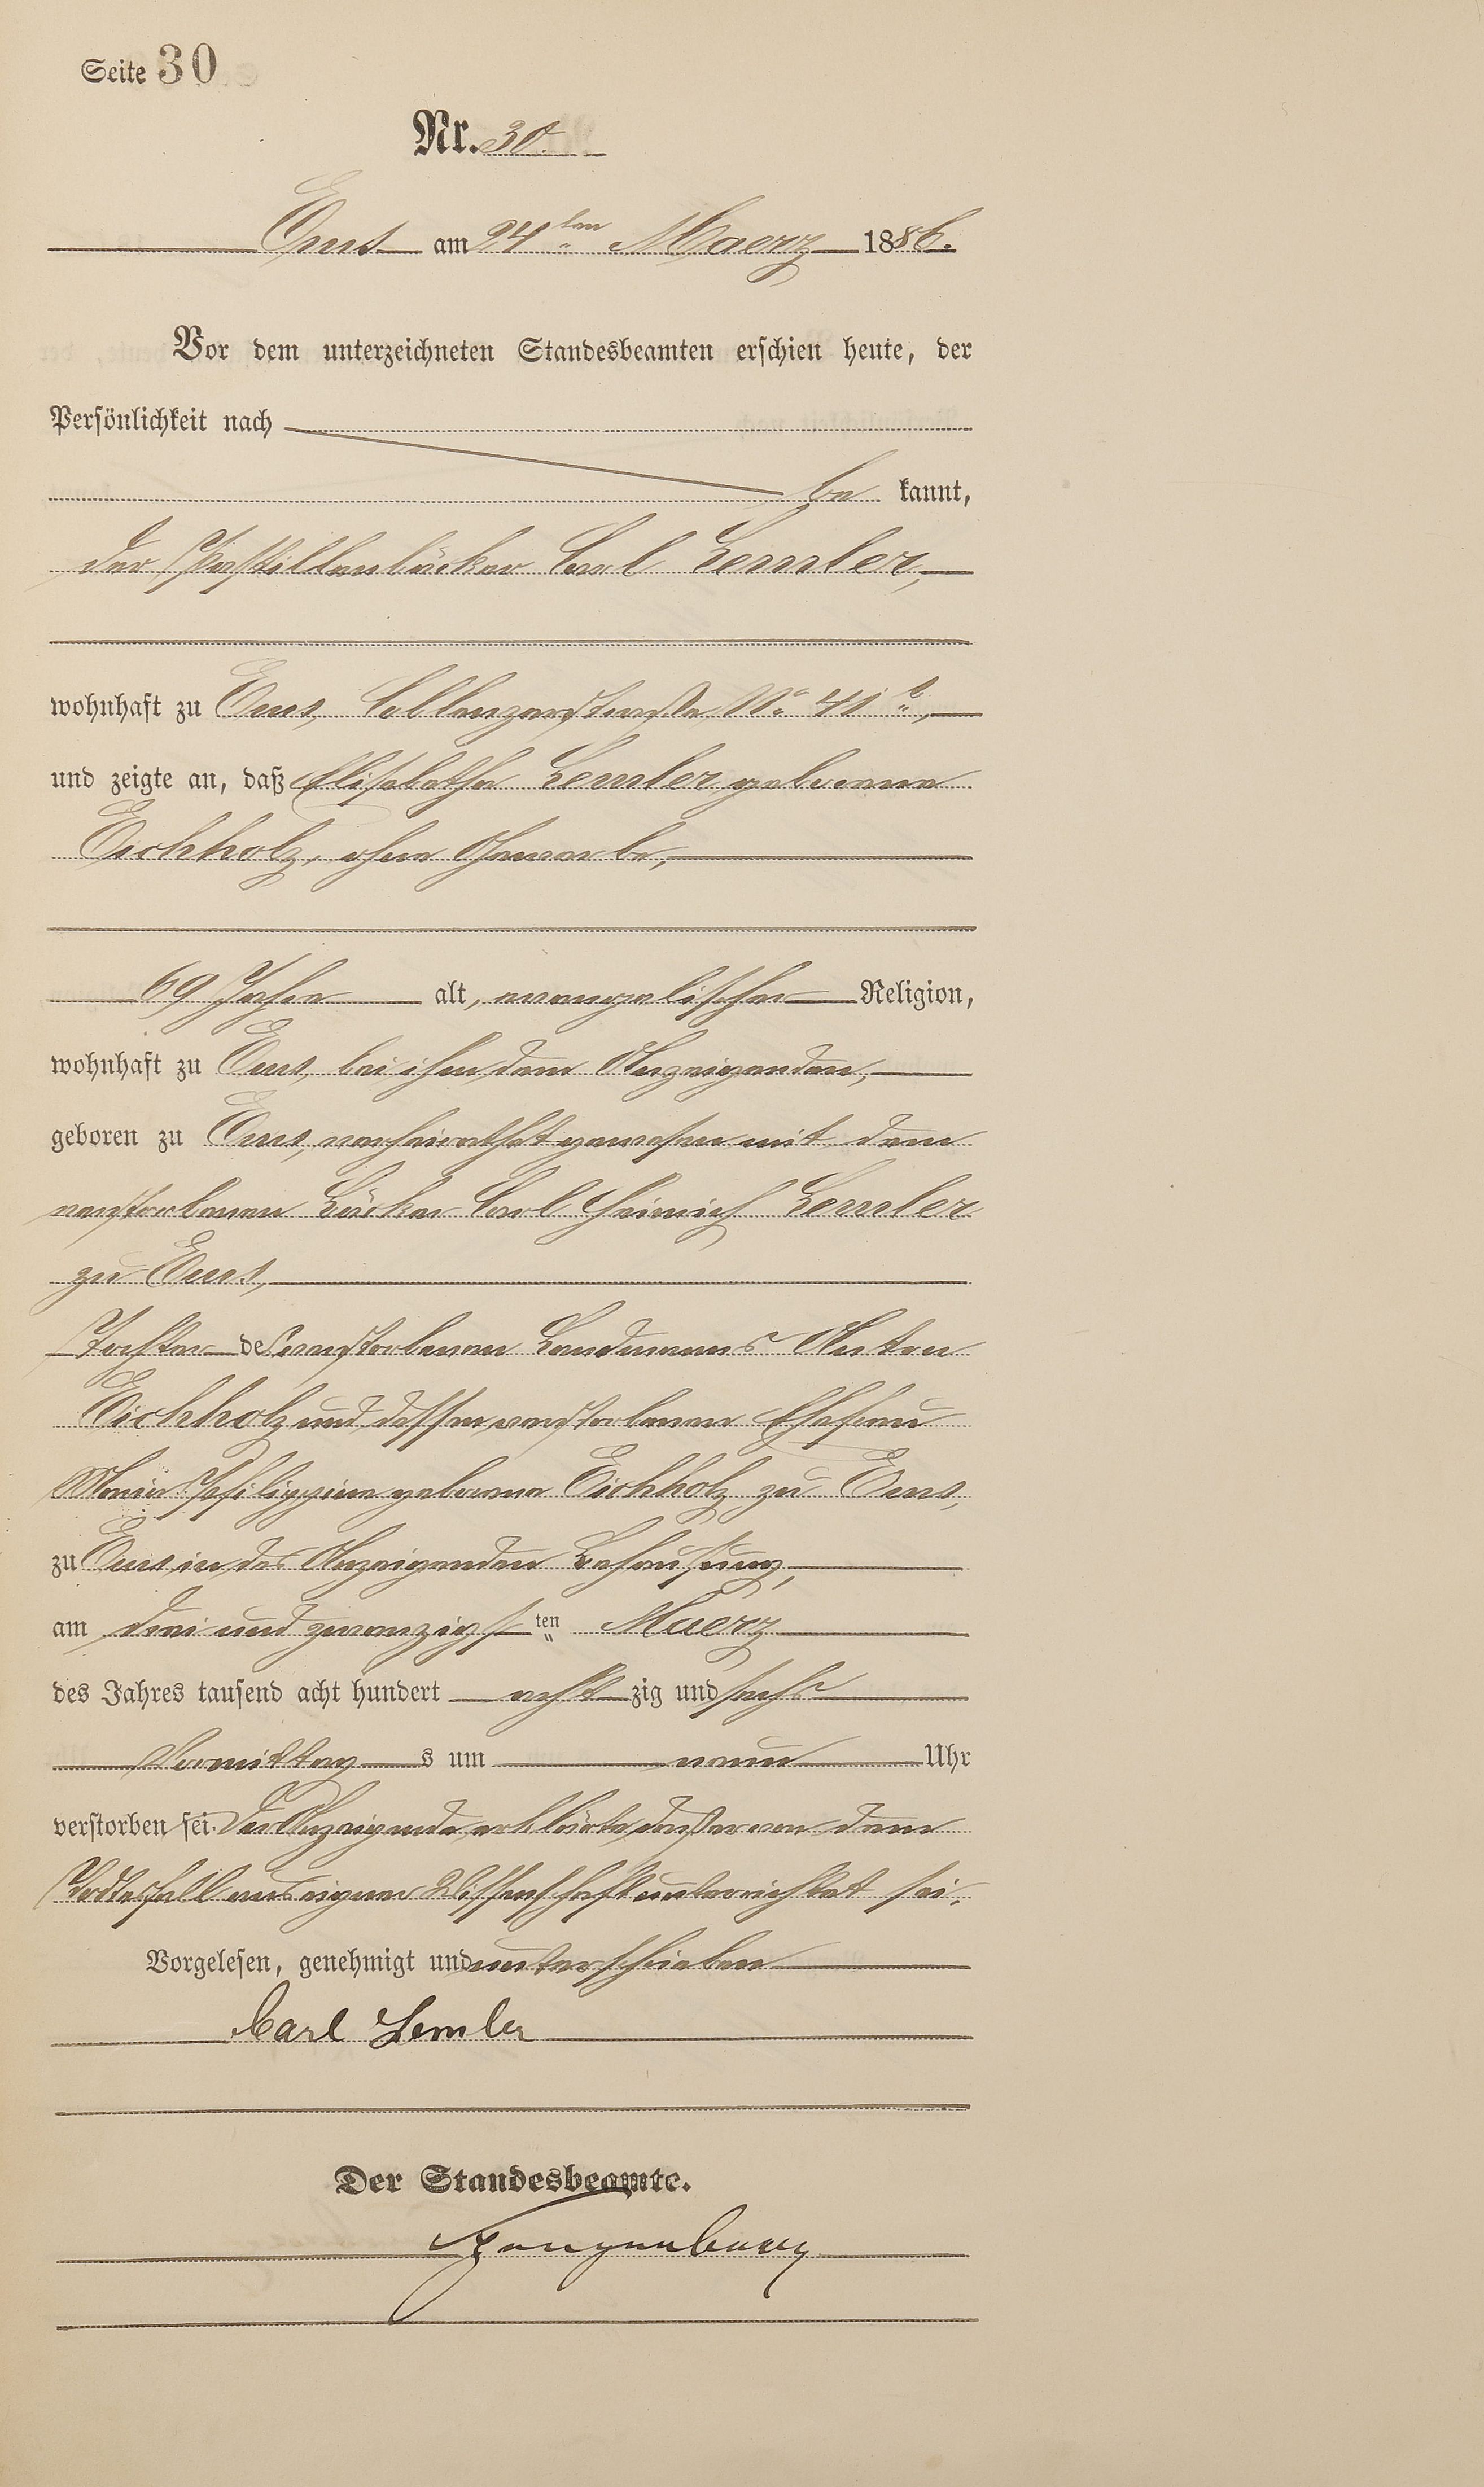 Seite 30
Nr. 30.
Ems am 24ten Maerz 1886.
Vor dem unterzeichneten Standesbeamten erschien heute, der
Persönlichkeit nach
be kannt,
der Pastillenbäcker Carl Lemler,
wohnhaft zu Ems, Coblenzerstraße No 41 b,
und zeigte an, daß Elisabetha Lemler geborene
Eichholz, ohne Gewerbe,
69 Jahre alt, evangelischer Religion,
wohnhaft zu Ems, bei ihm, dem Anzeigenden,
geboren zu Ems, verheirathet gewesen mit dem
verstorbenen Bäcker Carl Heinrich Lemler
zu Ems,
Tochter des verstorbenen Landmanns Anton
Eichholz und dessen verstorbenen Ehefrau
Maria Philippine geborene Eichholz zu Ems,
zu Ems in des Anzeigenden Behausung,
am drei und zwanzigsten Maerz
des Jahres tausend acht hundert acht zig und sechs
Vormittag s um neun Uhr
verstorben sei. Der Anzeigende erklärte, daß er von dem
Todesfall aus eigener Wissenschaft unterrichtet sei.
Vorgelesen, genehmigt und unterschrieben
Carl Lemler
Der Standesbeamte.